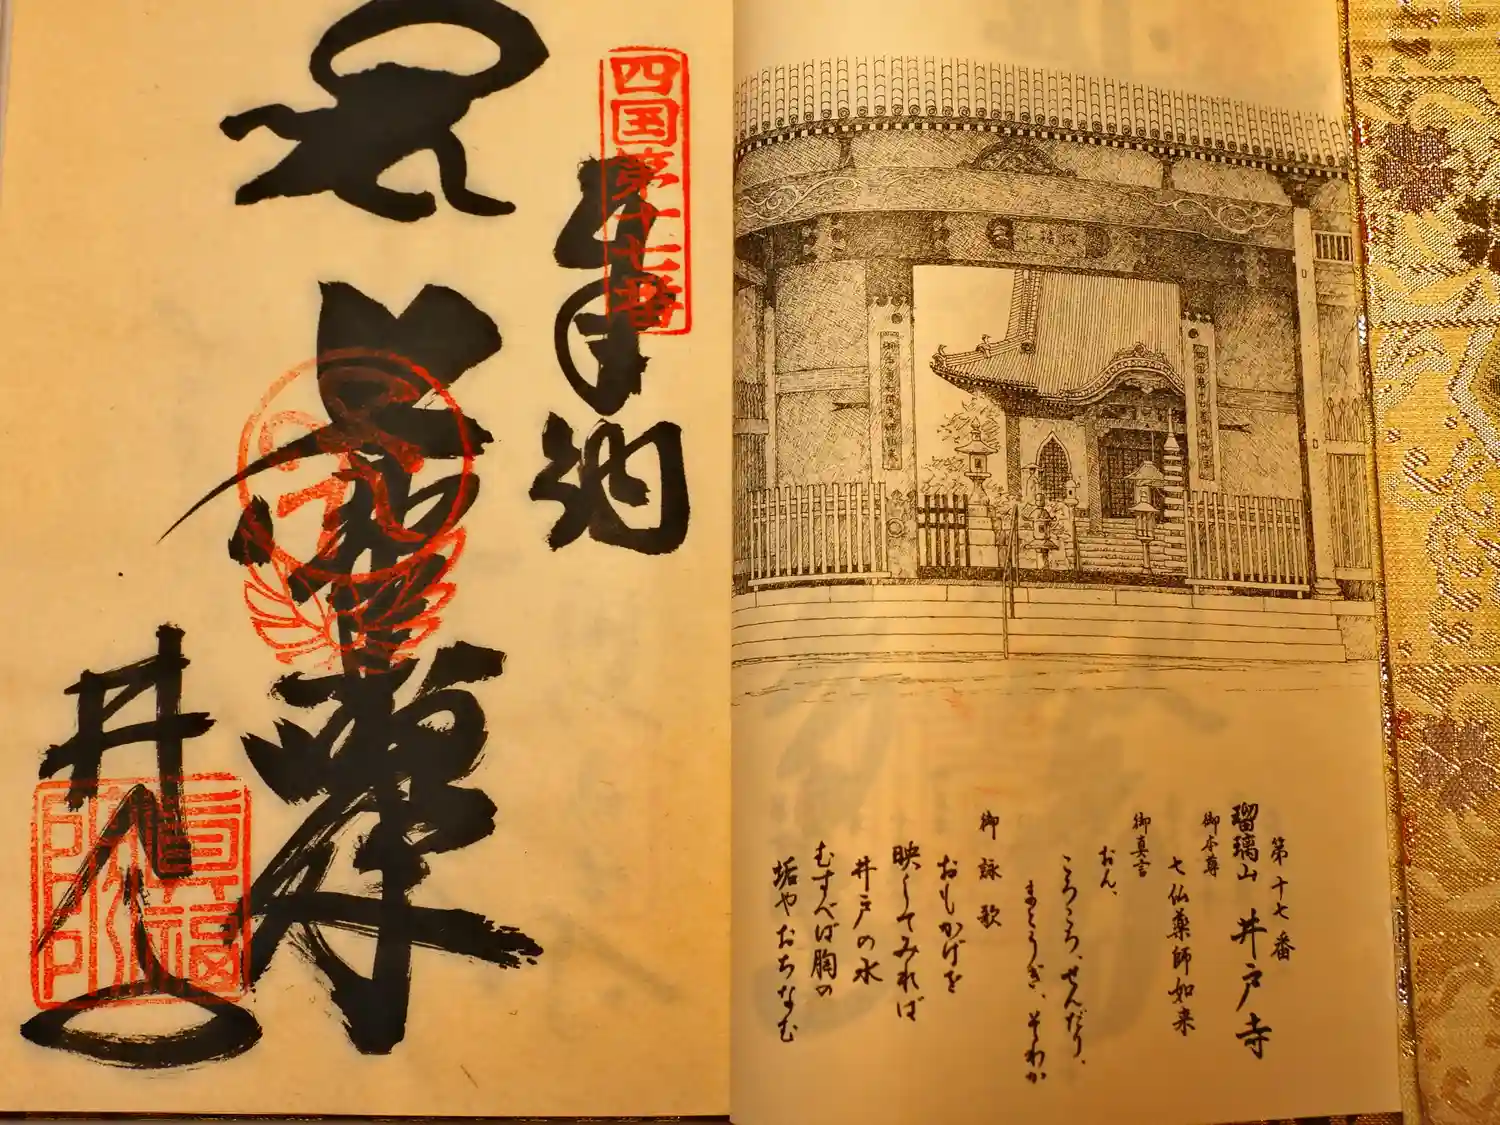 第十七番
瑠璃山 井戸寺
御本尊
七仏薬師如来
御真言
おん、
ころころ、せんだり、
まとうぎ、そわか
御詠歌
おもかげを
映してみれば
井戸の水
むすべば胸の
垢やおちなむ
四国第十七番
奉納
井